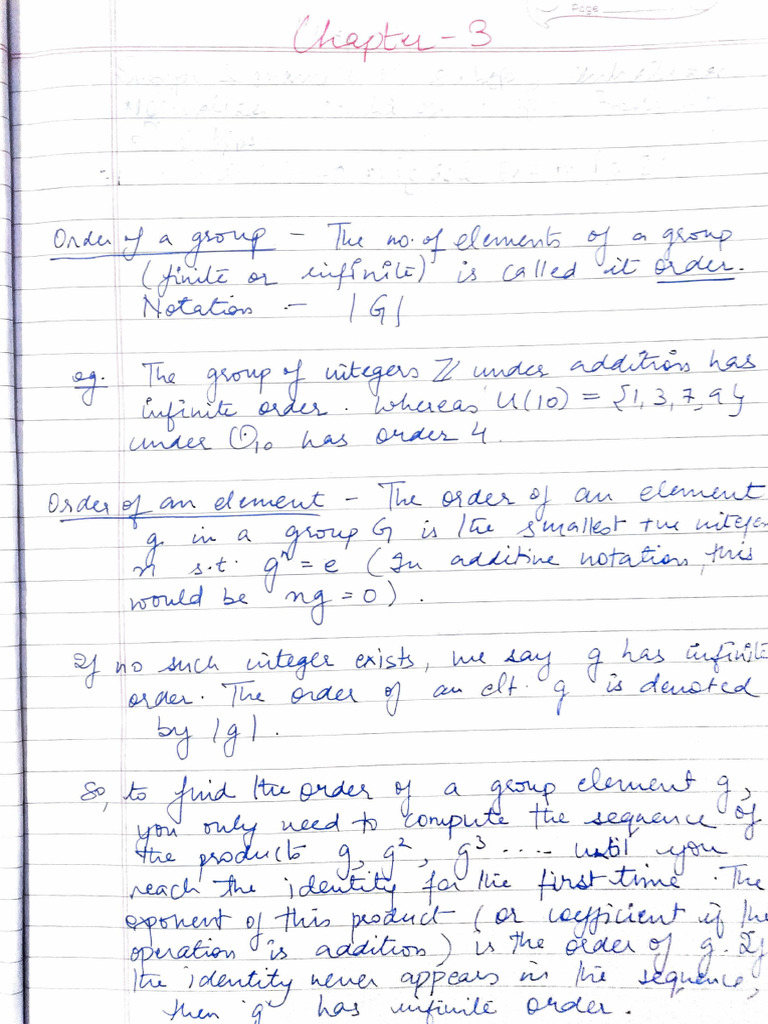 Page
Chapter - 3
Order of a group - The no. of elements of a group
(finite or infinite) is called it order.
Notation - |G|
eg. The group of integers ℤ under addition has
infinite order. whereas U(10) = {1, 3, 7, 9}
under ⊙₁₀ has order 4.
Order of an element - The order of an element
g in a group G is the smallest +ve integer
n s.t. gⁿ = e (In additive notation, this
would be ng = 0).
If no such integer exists, we say g has infinite
order. The order of an elt. g is denoted
by |g|.
So, to find the order of a group element g,
you only need to compute the sequence of
the products g, g², g³ .... until you
reach the identity for the first time. The
exponent of this product (or coefficient if the
operation is addition) is the order of g. If
the identity never appears in the sequence,
then g has infinite order.